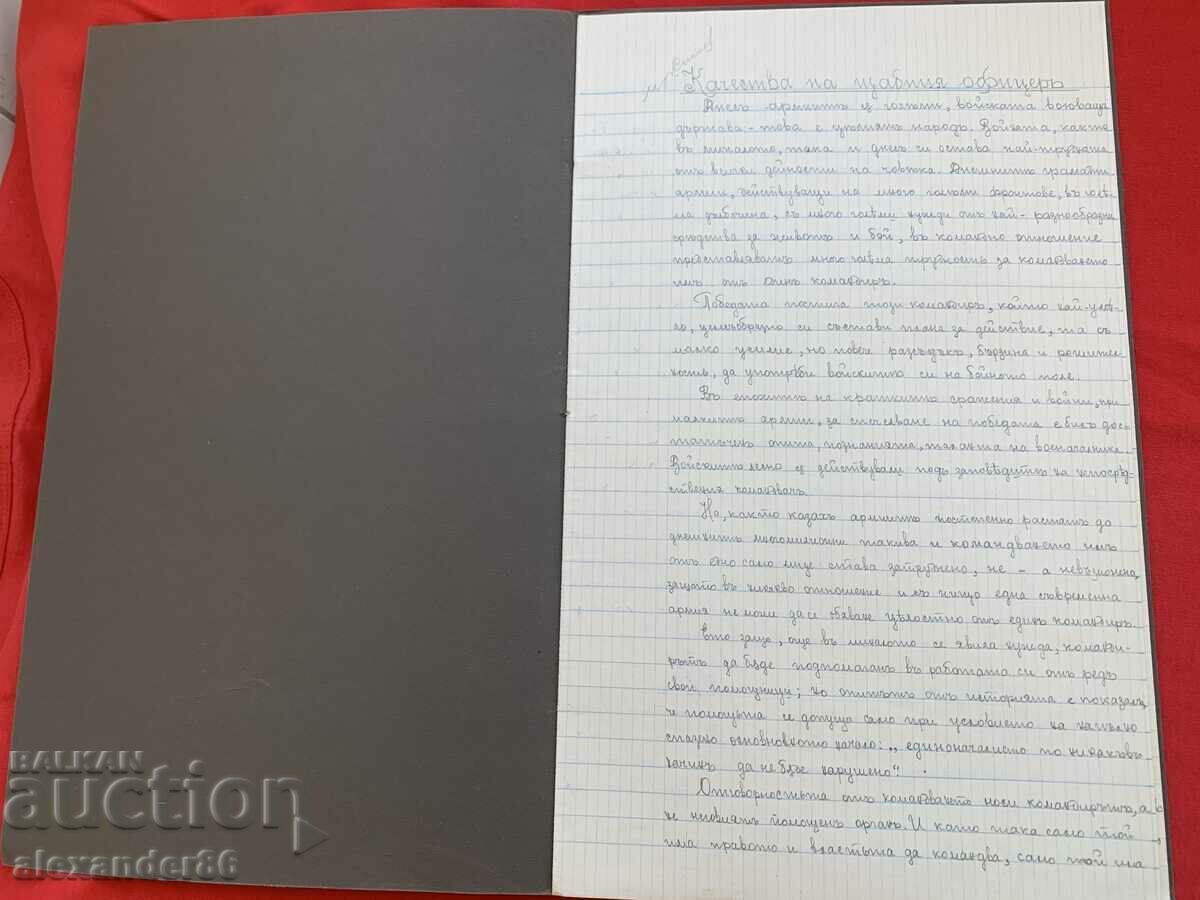 Качества на щабния офицеръ
Днесъ армиитѣ сѫ голѣми, войската воюваща
държава - това е цѣлиятъ народъ. Войната, както
въ миналото, така и днесъ си остава най-трудната
отъ всички дейности на човѣка. Днешнитѣ грамадни
армии, действуващи на много голѣми фронтове, въ голѣ-
ма дълбочина, съ много голѣми нужди отъ най-разнообразни
срѣдства за животъ и бой, въ командно отношение
представляватъ много голѣма трудность за командването
имъ отъ единъ командиръ.
Победата постига този командиръ, който най-умѣ-
ло, целесъобразно си състави плана за действие, та съ
малко усилие, но повече разсъдъкъ, бързина и решител-
ность, да употрѣби войскитѣ си на бойното поле.
Въ епохитѣ на краткитѣ сражения и войни, при
малкитѣ армии, за спечелване на победата е билъ дос-
татъченъ опита, познанията, таланта на военачалника.
Войскитѣ лесно сѫ действували подъ заповѣдитѣ на непосрѣд-
ствения командвачъ.
Но, както казахъ армиитѣ постепенно растатъ до
днешнитѣ многомилионни такива и командването имъ
отъ едно само лице става затруднено, не - а невъзможно,
защото въ никакво отношение и съ нищо една съвременна
армия не може да се обхване цѣлостно отъ единъ командиръ.
Ето защо, още въ миналото се явила нужда, команди-
рътъ да бѫде подпомаганъ въ работата си отъ редъ
свои помощници; но опитътъ отъ историята е показалъ,
че помощьта се допуща само при условието на напълно
спазено основновното начало: "единоначалието по никакъвъ
начинъ да не бѫде нарушено".
Отговорностьта отъ командването носи командирътъ, а
не неговиятъ помощенъ органъ. И като така само той
има правото и властьта да командва, само той има
BALKAN
auction
alexander86